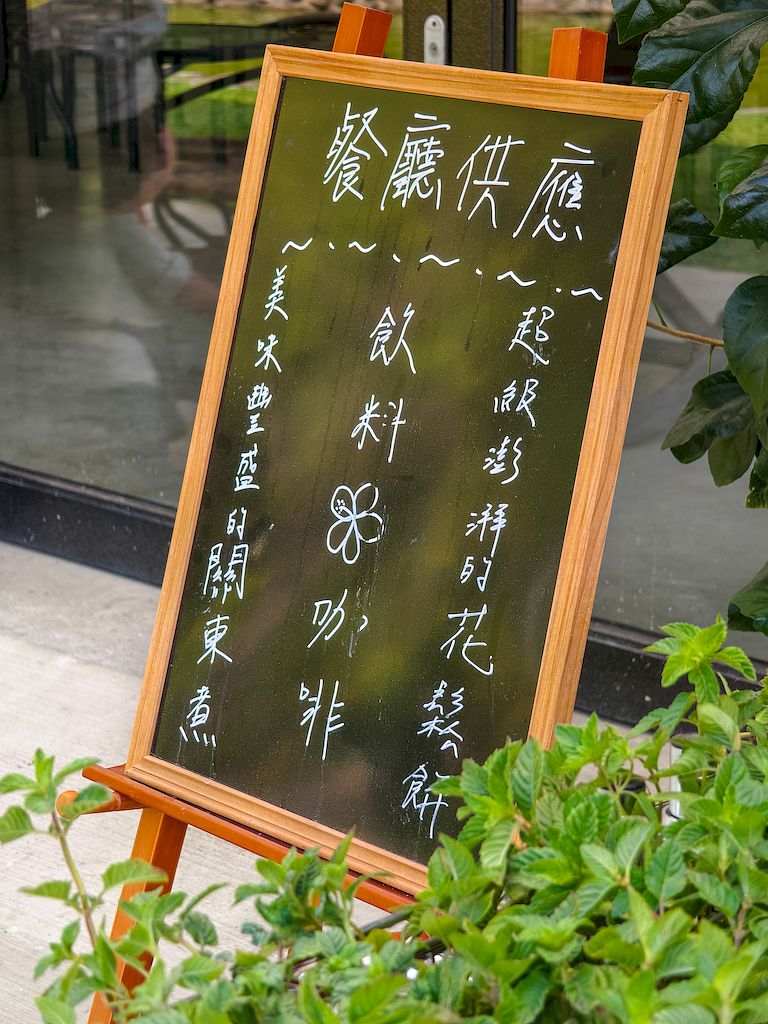 餐廳供應
超級澎湃的花鬆餅
飲料 咖啡
美味豐盛的關東煮